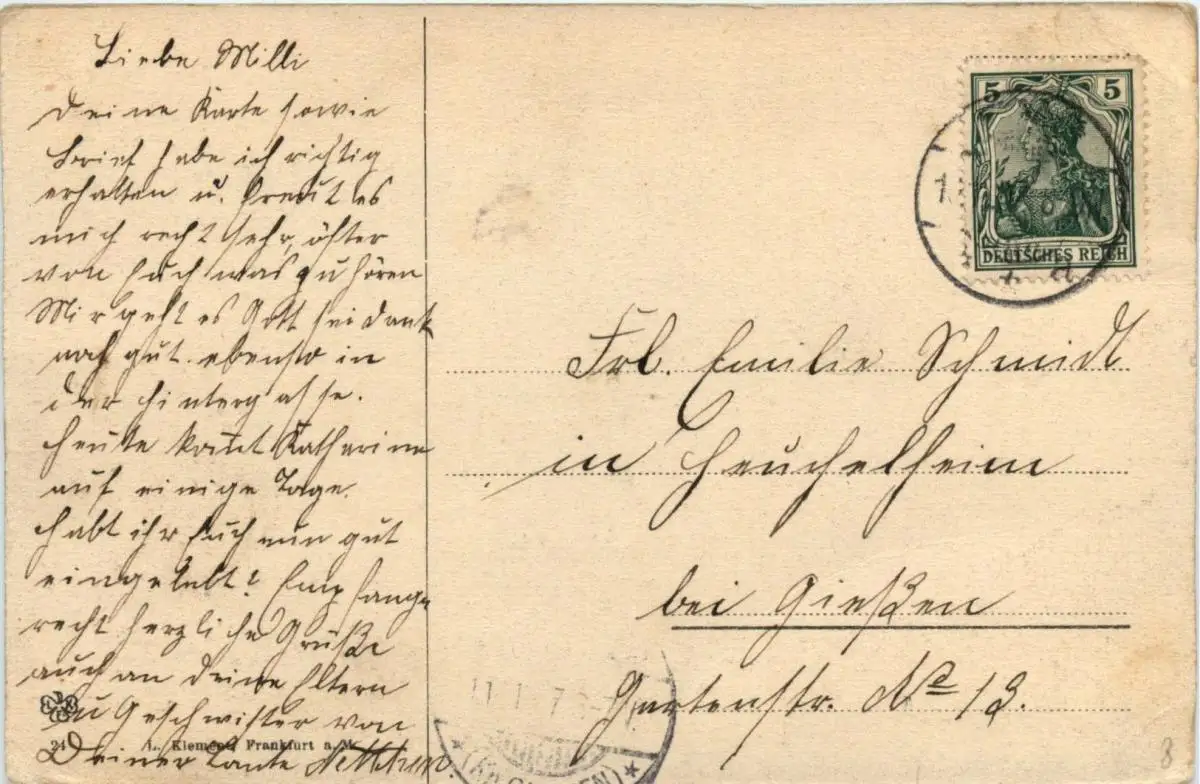 Liebe Milli
Deine Karte sowie
Brief habe ich richtig
erhalten u. freut es
mich recht sehr, öfter
von Euch was zu hören
Mir geht es Gott sei Dank
noch gut. ebenso in
der Hintergasse.
Heute kommt Katharine
auf einige Tage.
Habt ihr Euch nun gut
eingelebt? Empfange
recht herzliche Grüße
auch an Deine Eltern
u Geschwister von
Deiner Tante
24 L. Klement, Frankfurt a. M.
5 5
DEUTSCHES REICH
Frl. Emilie Schmidt
in Heuchelheim
bei Gießen
Gartenstr. No 13.
11 1 7
GIESSEN
8